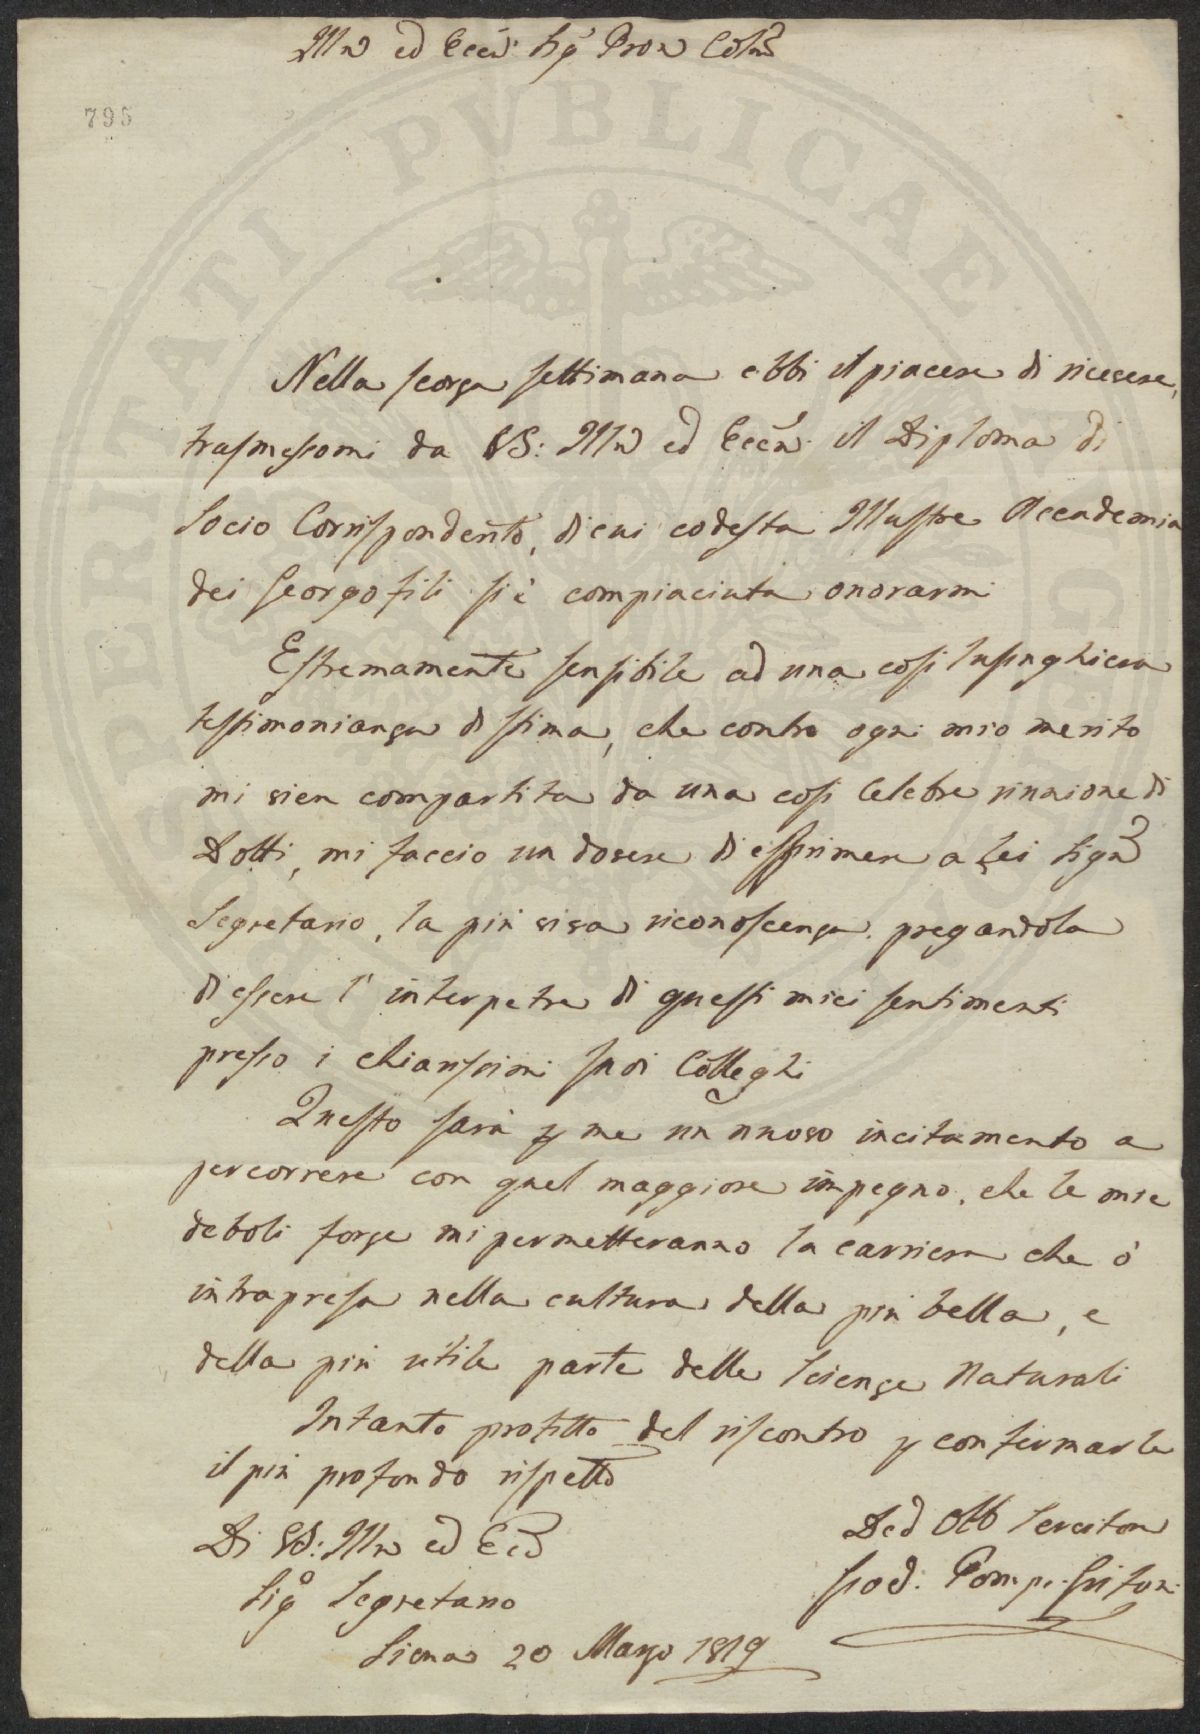 Illmo ed Eccmo Sigr Pron Colmo
795
Nella scorsa settimana ebbi il piacere di ricevere,
trasmessomi da VS: Illma ed Eccma il Diploma di
Socio Corrispondente, di cui codesta Illustre Accademia
dei Georgofili si è compiaciuta onorarmi
Estremamente sensibile ad una così lusinghiera
testimonianza di stima, che contro ogni mio merito
mi vien compartita da una così Celebre riunione di
Dotti, mi faccio un dovere di esprimere a Lei Sigre
Segretario, la più viva riconoscenza pregandola
di essere l'interpetre di questi miei sentimenti
presso i chiarissimi suoi Colleghi
Questo sarà p me un nuovo incitamento a
percorrere con quel maggiore impegno, che le mie
deboli forze mi permetteranno la carriera che ò
intrapresa nella cultura della più bella, e
della più utile parte delle Scienze Naturali
Intanto profitto del riscontro p confermarle
il più profondo rispetto
Di VS: Illma ed Ecc
Sigr Segretario
Siena 20 Marzo 1819
Ded Obb Servitore